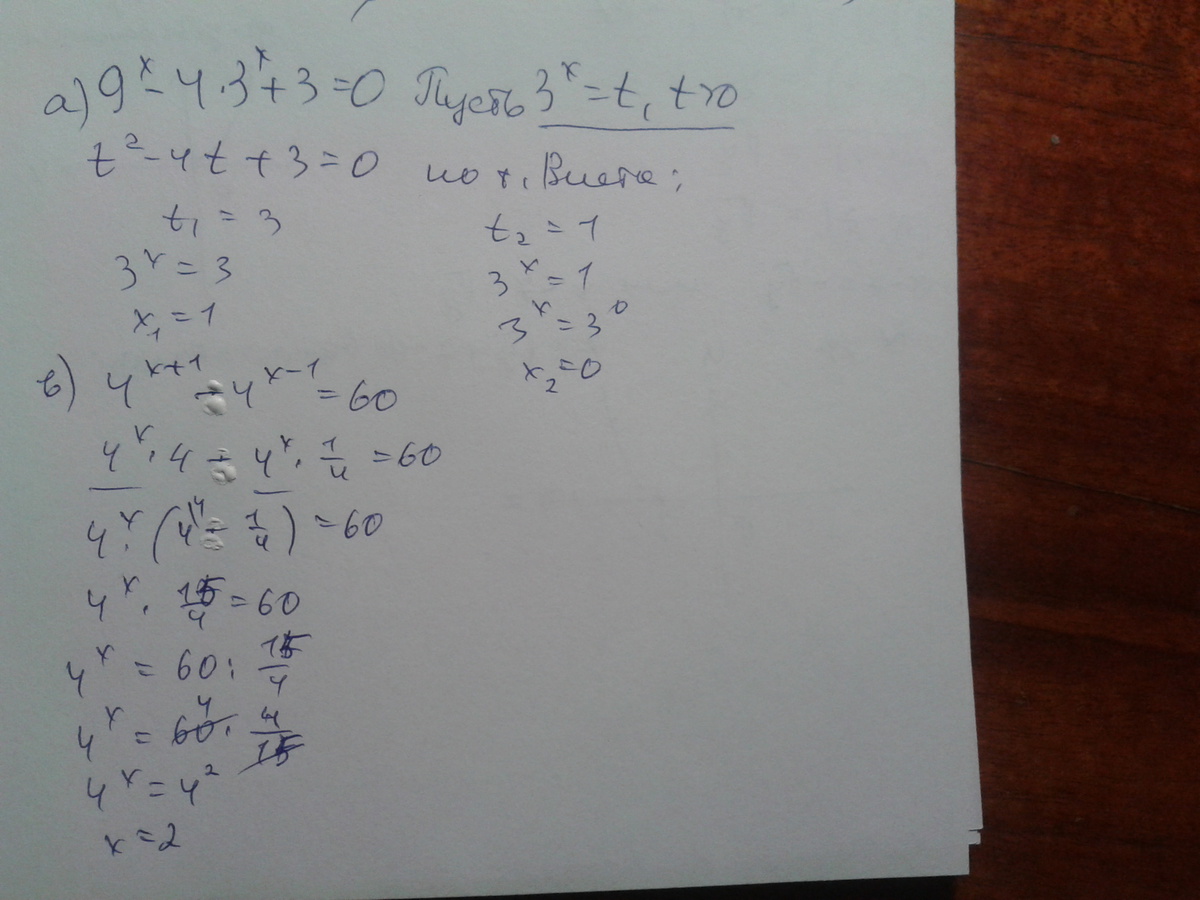 а) 9^x - 4·3^x + 3 = 0 Пусть 3^x = t, t>0
t² - 4t + 3 = 0 по т. Виета:
t₁ = 3 t₂ = 1
3^x = 3 3^x = 1
x₁ = 1 3^x = 3^0
x₂ = 0
в) 4^(x+1) - 4^(x-1) = 60
4^x · 4 - 4^x · 1/4 = 60
4^x · (4 - 1/4) = 60
4^x · 15/4 = 60
4^x = 60 : 15/4
4^x = 60 · 4/15
4^x = 4²
x = 2